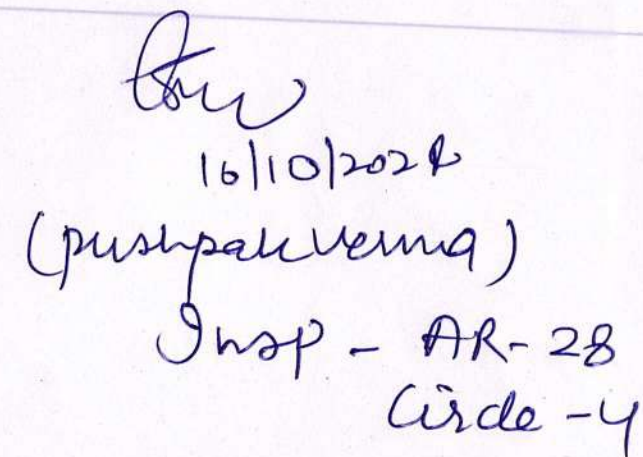 16/10/2024
(pushpak verma)
Insp - AR- 28
Circle -4